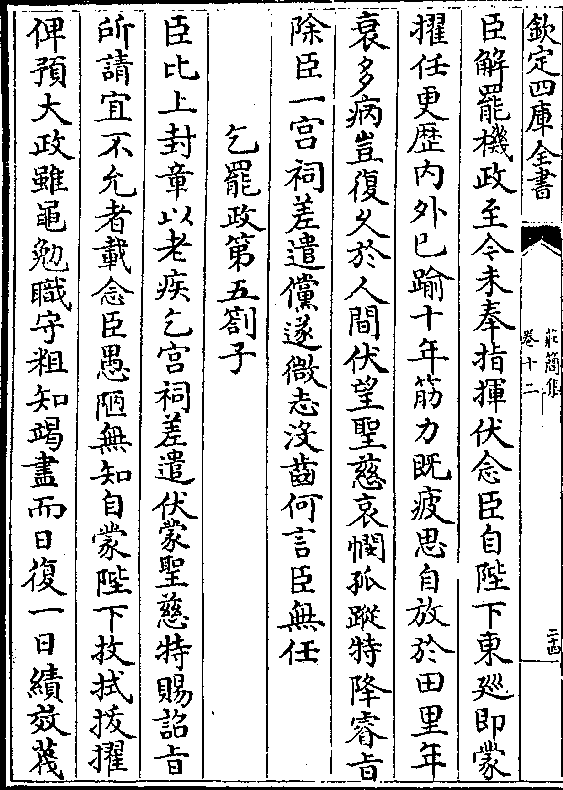 欽定四庫全書
莊簡集
卷十二
二十四
臣解罷機政至今未奉指揮伏念臣自陛下東廵即蒙
擢任更歴内外已踰十年筋力既疲思自放於田里年
衰多病豈復乆於人間伏望聖慈哀憫孤蹤特降睿㫖
除臣一宫祠差遣儻遂微志沒齒何言臣無任
乞罷政第五劄子
臣比上封章以老疾乞宫祠差遣伏蒙聖慈特賜詔㫖
所請宜不允者載念臣愚陋無知自蒙陛下抆拭拔擢
俾預大政雖黽勉職守粗知竭盡而日復一日績效蔑